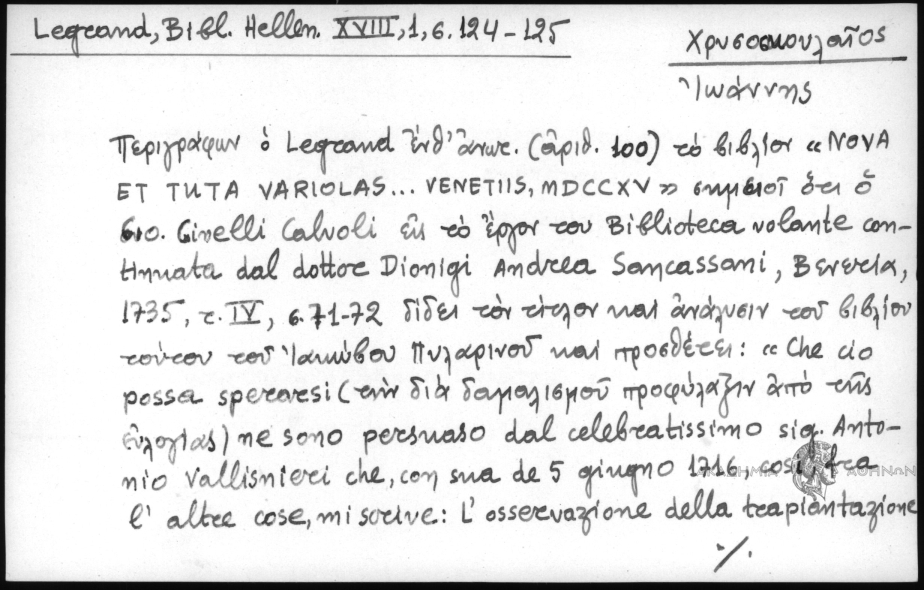 Legrand, Bibl. Hellen. XVIII, 1, σ. 124-125
Χρυσοσκουλαῖος
Ἰωάννης
Περιγράφων ὁ Legrand ἐνθ' ἀνωτ. (ἀριθ. 100) τὸ βιβλίον «NOVA
ET TUTA VARIOLAS... VENETIIS, MDCCXV» σημειοῖ ὅτι ὁ
Gio. Cinelli Calvoli εἰς τὸ ἔργον του Biblioteca volante con-
tinuata dal dottor Dionigi Andrea Sancassani, Βενετία,
1735, τ. IV, σ. 71-72 δίδει τὸν τίτλον καὶ ἀνάλυσιν τοῦ βιβλίου
τούτου τοῦ Ἰακώβου Πυλαρινοῦ καὶ προσθέτει: «Che ciò
possa sperarsi (τὴν διὰ δαμαλισμοῦ προφύλαξιν ἀπὸ τῆς
εὐλογίας) ne sono persuaso dal celebratissimo sig. Anto-
nio Vallisnieri che, con sua de 5 giugno 1716, così, fra
l' altre cose, mi scrive: L' osservazione della trapiantazione
./.
ΑΚΑΔΗΜΙΑ ΑΘΗΝΩΝ